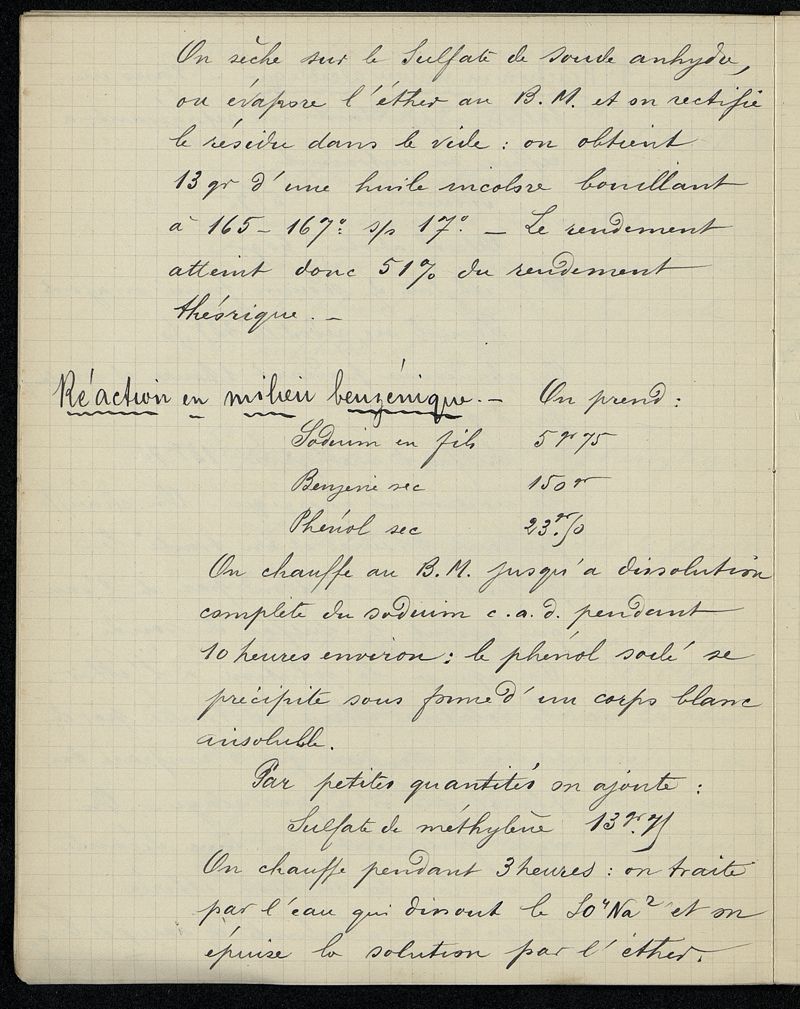 On sèche sur le Sulfate de soude anhydre,
on évapore l'éther au B.M. et on rectifie
le résidu dans le vide : on obtient
13 gr d'une huile incolore bouillant
à 165 - 167° s/s 17°. - Le rendement
atteint donc 51% du rendement
théorique. -
Réaction en milieu benzénique. - On prend :
Sodium en fils 5 gr 75
Benzène sec 150 gr
Phénol sec 23 gr. 50
On chauffe au B.M. jusqu'a dissolution
complète du sodium c.a.d. pendant
10 heures environ : le phénol sodé se
précipite sous forme d'un corps blanc
insoluble.
Par petites quantités on ajoute :
Sulfate de méthylène 13 gr. 75
On chauffe pendant 3 heures : on traite
par l'eau qui dissout le SO⁴Na² et on
épuise la solution par l'éther.